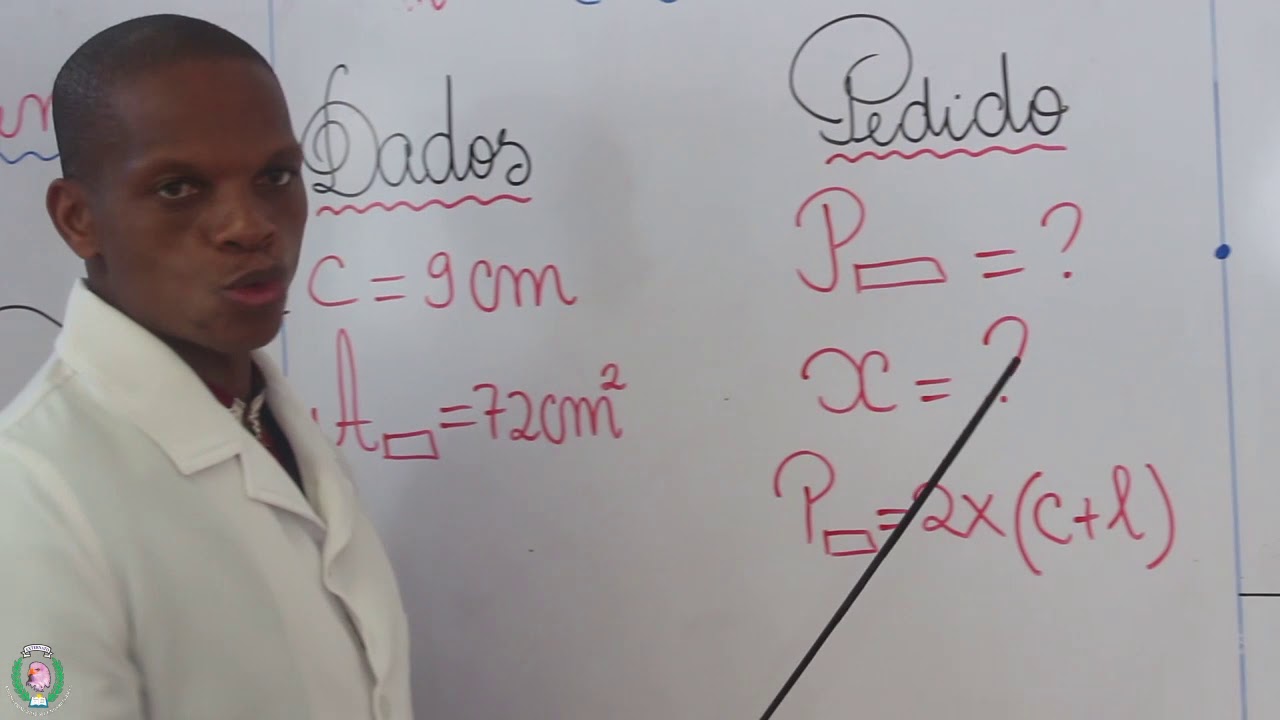 Dados
c = 9cm
A▭ = 72cm²
Pedido
P▭ = ?
x = ?
P▭ = 2x(c+l)